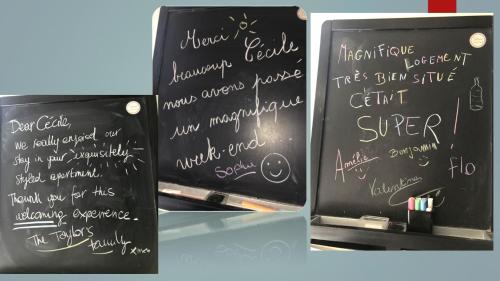 Dear Cécile,
we really enjoyed our
stay in your exquisitely
styled apartment.
Thank you for this
welcoming experience.
The Taylor's
family
Merci Cécile
beaucoup
nous avons passé
un magnifique
week-end.
Sophie
MAGNIFIQUE
LOGEMENT
TRÈS BIEN SITUÉ
C'ÉTAIT
SUPER!
Amélie
Benjamin
flo
Valentina